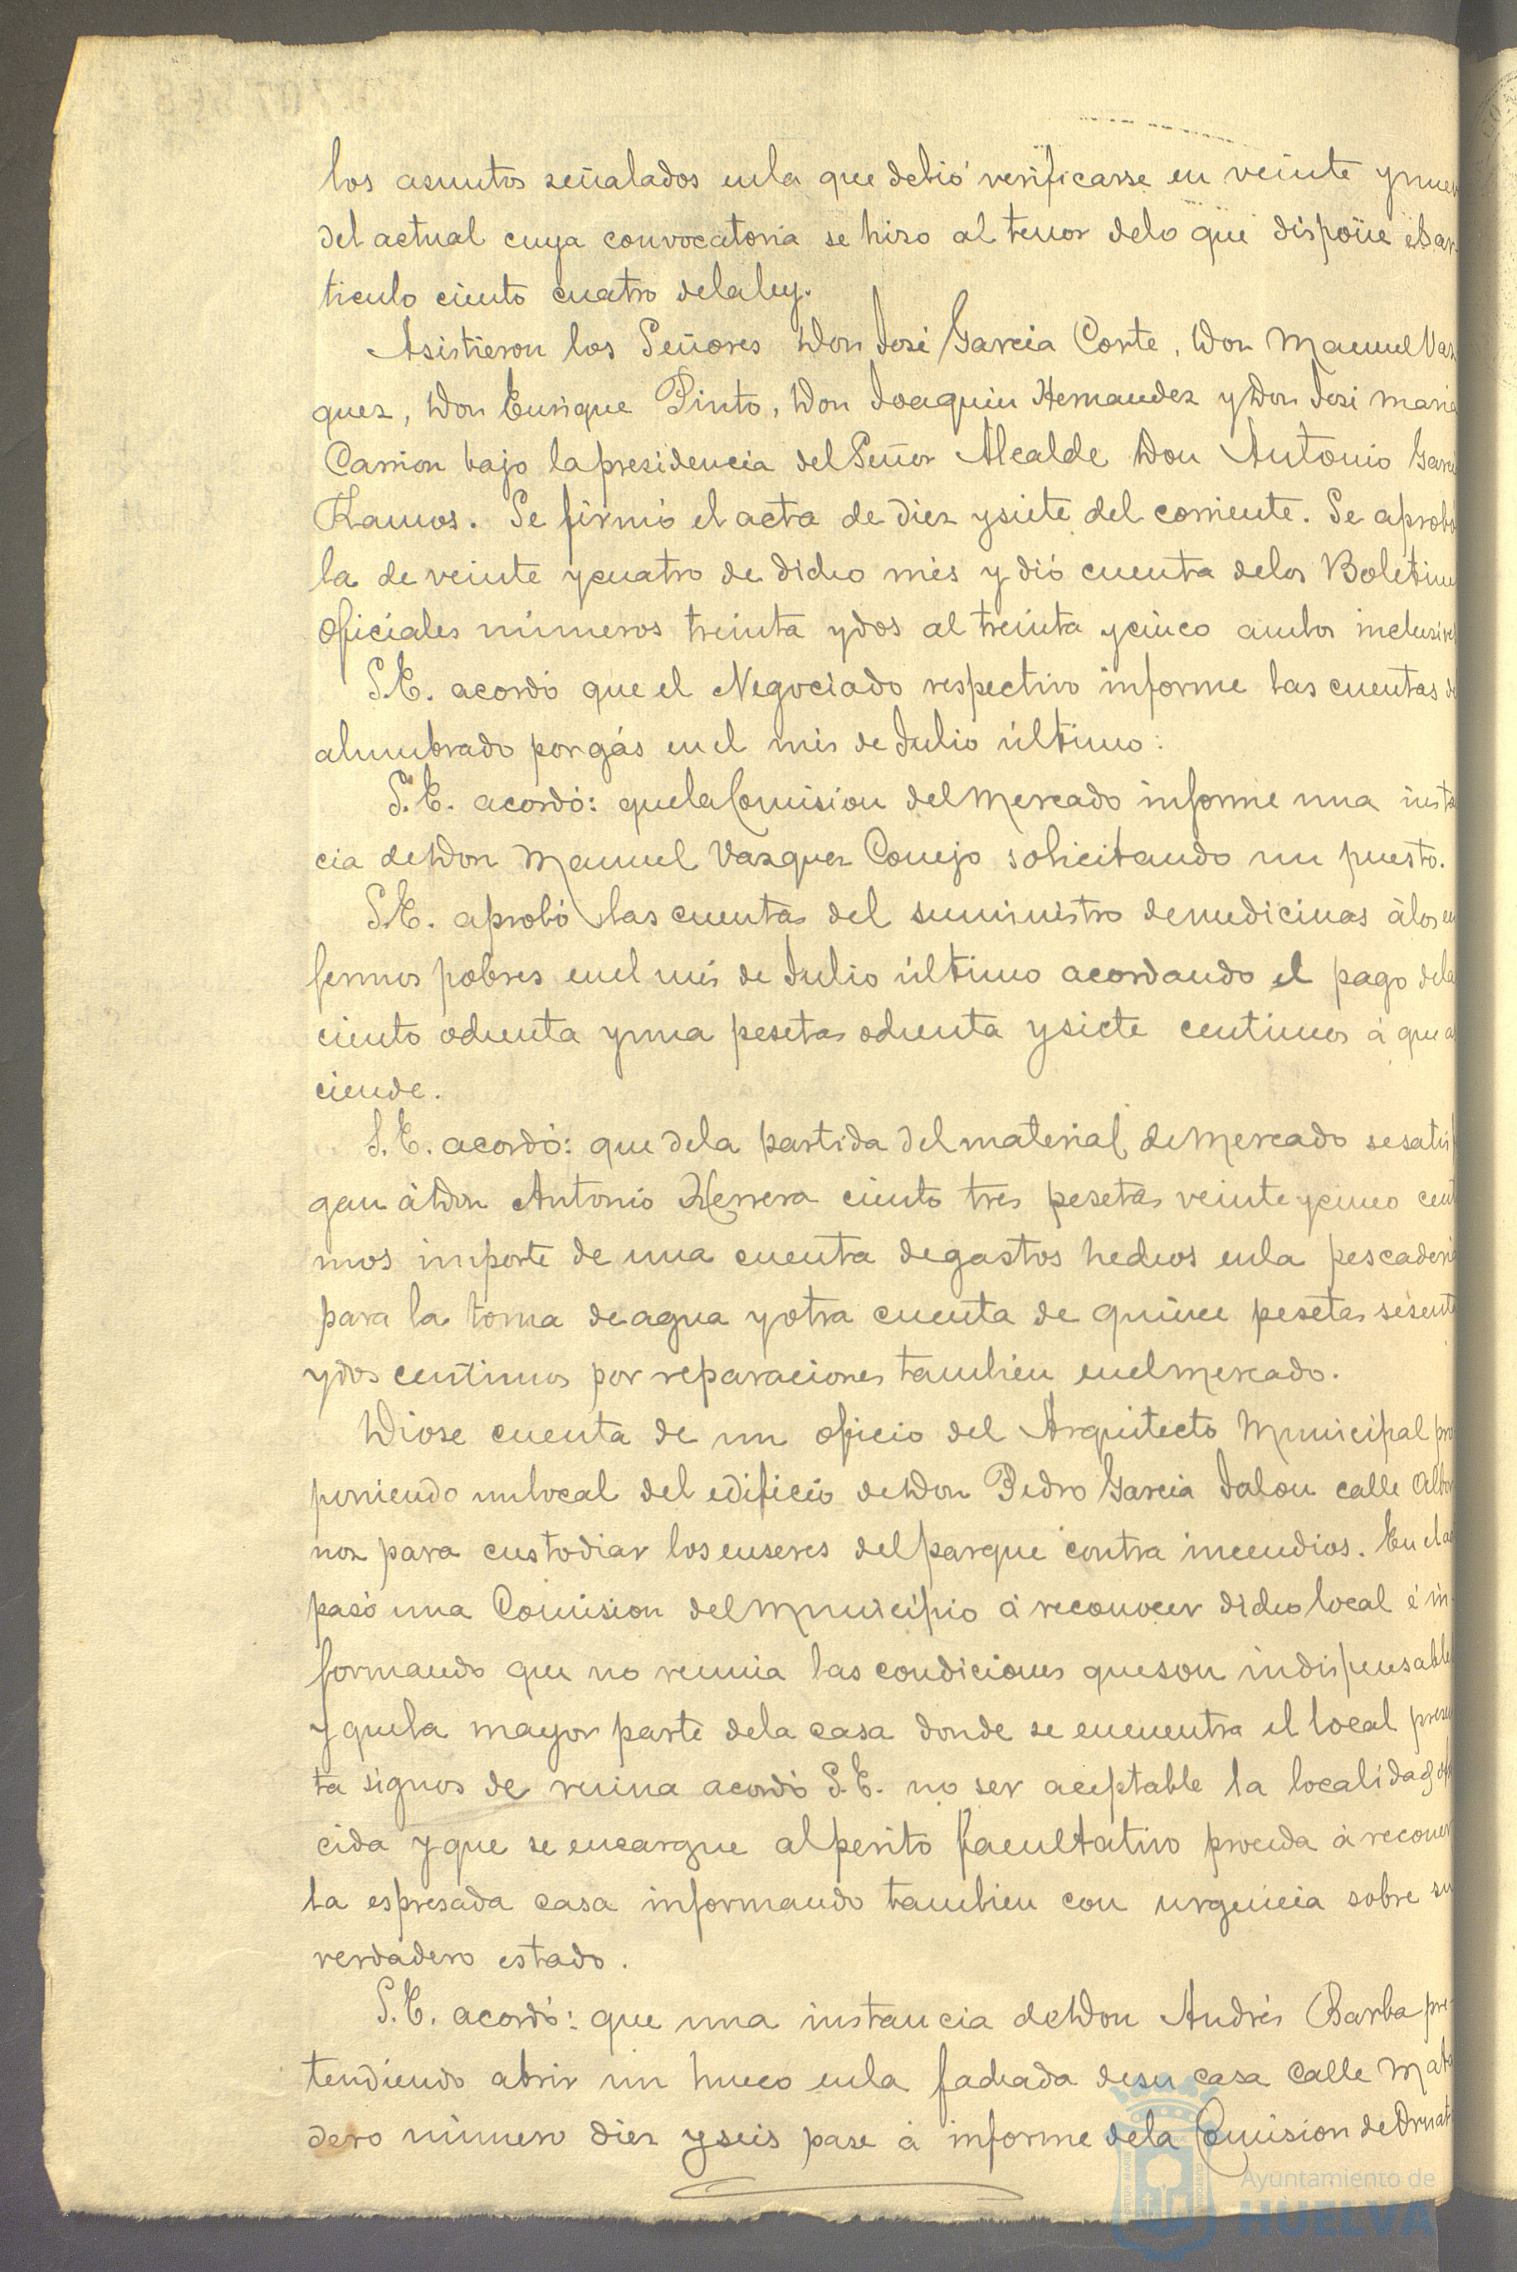 los asuntos señalados enla que debió verificarse en veinte ynuev
del actual cuya convocatoria se hizo al tenor delo que dispone el ar
ticulo ciento cuatro delaley.
Asistieron los Señores Don José Garcia Corte, Don Manuel Vaz
quez, Don Enrique Pinto, Don Joaquin Hernandez y Don José Maria
Carrion bajo lapresidencia del Señor Alcalde Don Antonio Garci
Ramos. Se firmó el acta de diez ysiete del corriente. Se aprobó
la de veinte ycuatro de dicho més y dió cuenta delos Boletine
Oficiales números treinta ydos al treinta ycinco ambos inclusive
S.E. acordó que el Negociado respectivo informe las cuentas de
alumbrado por gás enel més de Julio último:
S.E. acordó: quela Comision del Mercado informe una insta
cia de Don Manuel Vazquez Conejo solicitando un puesto.
S.E. aprobó las cuentas del suministro demedicinas álos en
fermos pobres enel més de Julio último acordando el pago dela
ciento ochenta yuna pesetas ochenta ysiete centimos á que a
ciende.
S.E. acordó: que dela partida del material de Mercado sesatis
gan á Don Antonio Herrera ciento tres pesetas veinte ycinco cent
mos importe de una cuenta degastos hechos enla pescaderi
para la toma de agua yotra cuenta de quince pesetas sesent
ydos centimos por reparaciones tambien enelmercado.
Diose cuenta de un oficio del Arquitecto Municipal pro
poniendo unlocal del edificio de Don Pedro Garcia Jalon calle Albor
noz para custodiar los enseres del parque contra incendios. En el ac
pasó una Comision del Municipio á reconocer dicho local é in-
formando que no reunia las condiciones queson indispensable
y quela mayor parte dela casa donde se encuentra el local presen
ta signos de ruina acordó S.E. no ser aceptable la localidad ofr
cida y que se encargue al perito facultativo proceda á reconer
la espresada casa informando tambien con urgencia sobre su
verdadero estado.
S.E. acordó: que una instancia de Don Andrés Barba pre-
tendiendo abrir un hueco enla fachada desu casa calle Mata
dero número diez yseis pase á informe dela Comision de Ornat
Ayuntamiento de
HUELVA